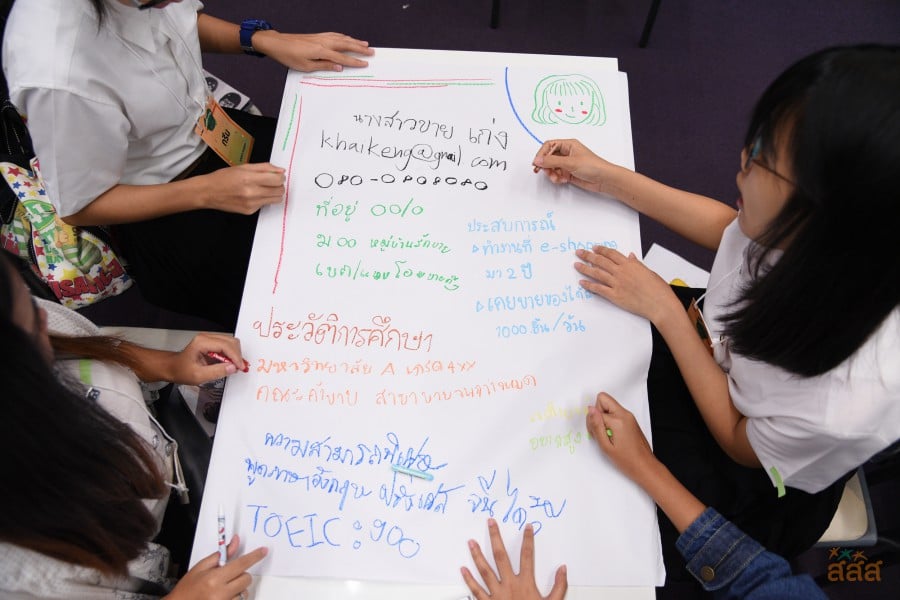 นางสาวขาย เก่ง
khaikeng@gmail.com
080-0808080
ที่อยู่ 00/0
ม 00 หมู่บ้านรักขาย
ประสบการณ์
ทำงานที่ e-shopping
มา 2 ปี
เคยขายของได้
1000 ชิ้น/วัน
ประวัติการศึกษา
มหาวิทยาลัย A เกรด 4xx
คณะค้าขาย สาขาขายจนรวย
ความสามารถพิเศษ
พูดภาษาอังกฤษ ฝรั่งเศส จีน ได้
TOEIC : 900
กรีน
สสส